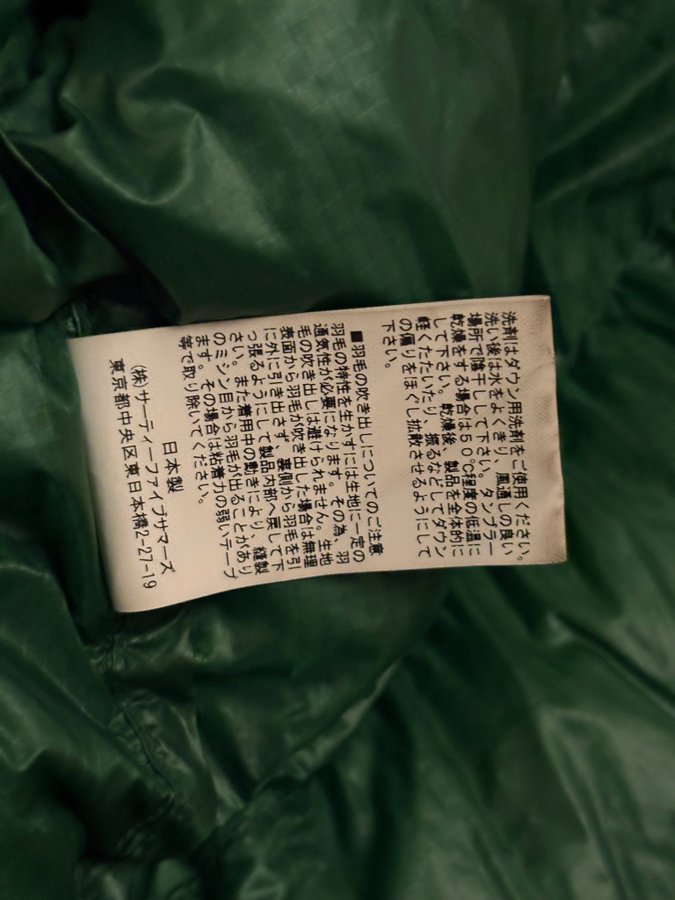 洗剤はダウン用洗剤をご使用ください。
洗い後は水をよくきり、風通しの良い
場所で陰干しして下さい。タンブラー
乾燥をする場合は50℃程度の低温に
して下さい。乾燥後、製品を全体的に
軽くたたいたり、振るなどしてダウン
の偏りをほぐし拡散させるようにして
下さい。
■羽毛の吹き出しについてのご注意
羽毛の特性を生かすには生地に一定の
通気性が必要になります。その為、羽
毛の吹き出しは避けられません。生地
表面から羽毛が吹き出した場合は無理
に外に引き出さず、裏側から羽毛を引
っ張るようにして製品内部へ戻して下
さい。また着用中の動きにより、縫製
のミシン目から羽毛が出ることがあり
ます。その場合は粘着力の弱いテープ
等で取り除いてください。
日本製
(株)サーティーファイブサマーズ
東京都中央区東日本橋2-27-19